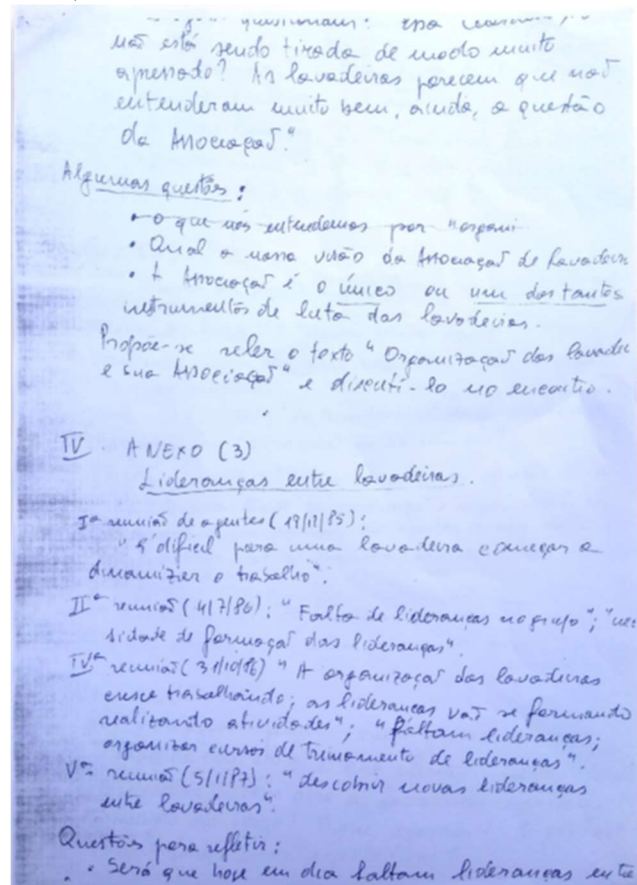 questionam: essa
não está sendo tirada de modo muito
apressado? As lavadeiras parecem que não
entenderam muito bem, ainda, a questão
da Associação."
Algumas questões:
• O que nós entendemos por "organi
• Qual a nossa visão da Associação de Lavadeira
• A Associação é o único ou um dos tantos
instrumentos de luta das lavadeiras.
Propõe-se reler o texto "Organização das lavadei
e sua Associação" e discuti-lo no encontro.
IV. ANEXO (3)
Lideranças entre lavadeiras.
Iª reunião de agentes (19/12/85):
"É difícil para uma lavadeira começar a
dinamizar o trabalho".
IIª reunião (4/7/86): "Falta de lideranças no grupo"; "neces
sidade de formação das lideranças".
IVª reunião (31/10/86) "A organização das lavadeiras
cresce trabalhando; as lideranças vão se formando
realizando atividades"; "faltam lideranças;
organizar cursos de treinamento de lideranças".
Vª reunião (5/1/87): "descobrir novas lideranças
entre lavadeiras".
Questões para refletir:
• Será que hoje em dia faltam lideranças entre